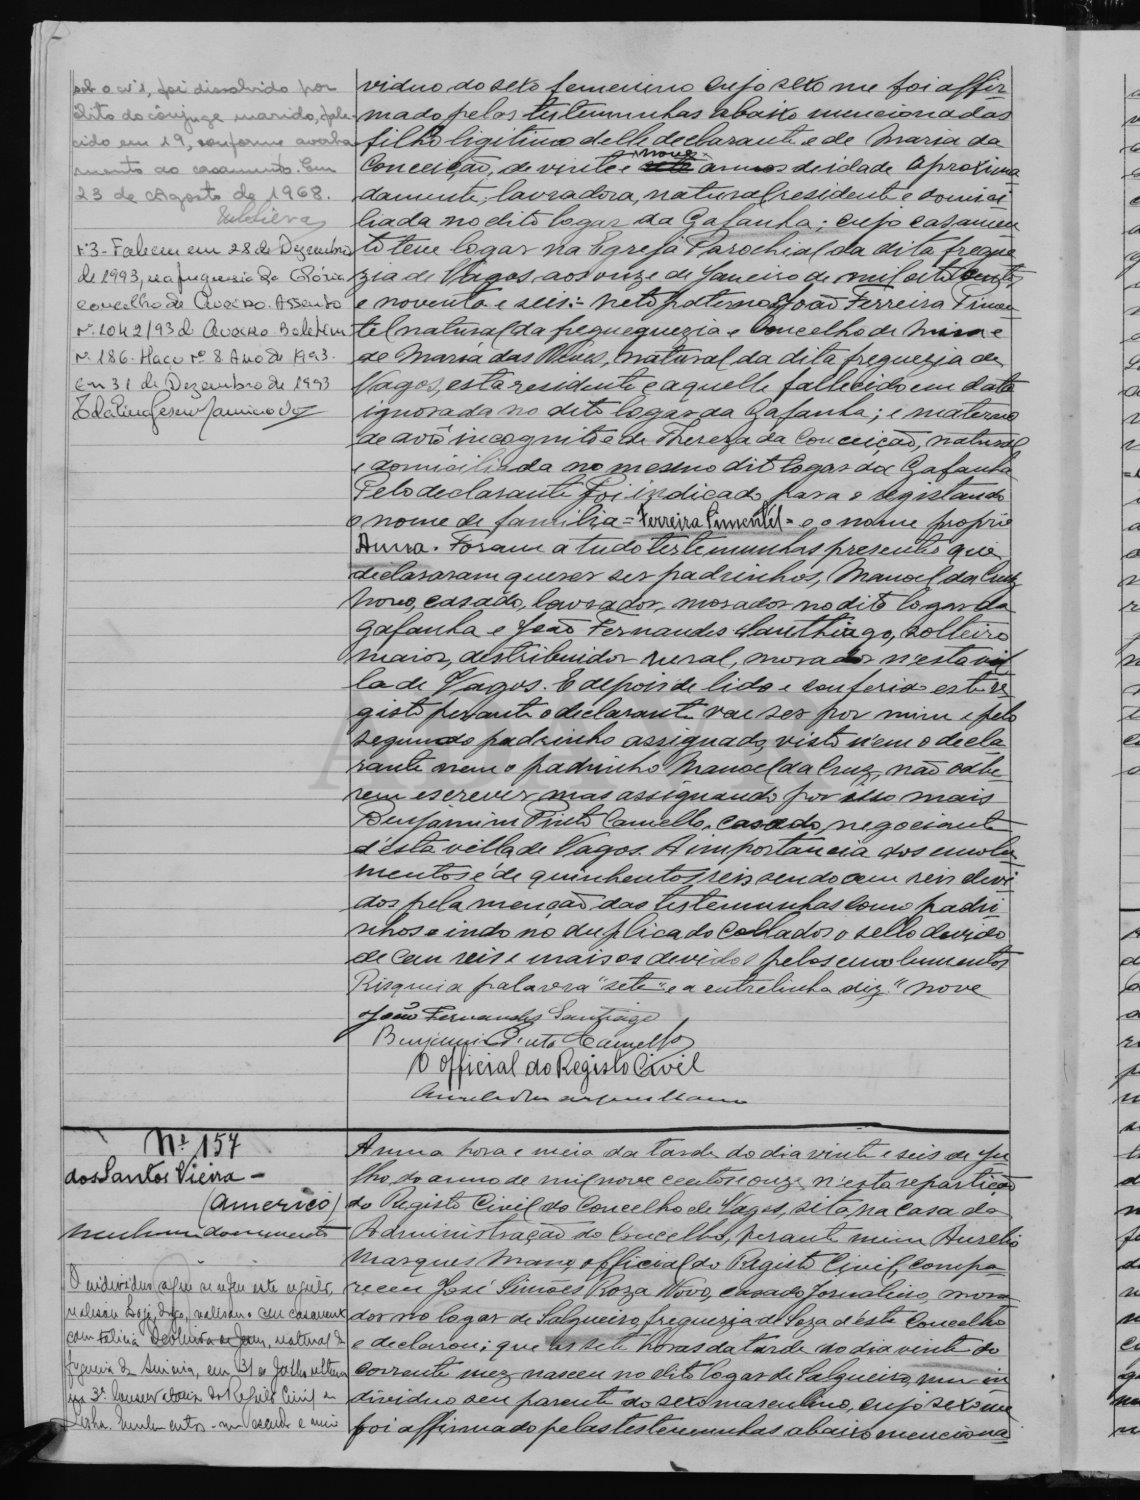 sob o nº 1, foi dissolvido por
óbito do cônjuge marido, fale-
cido em 19, conforme averba
mento ao casamento. Em
23 de Agosto de 1968.
Nº3 - Faleceu em 28 de Dezembro
de 1993, na freguesia da Glória
concelho de Aveiro. Assento
nº 1042/93 de Aveiro. Boletim
nº 186. Maço nº 8 Ano de 1993.
Em 31 de Dezembro de 1993
viduo do sexo femenino cujo sexo me foi affir
mado pelas testemunhas abaixo mencionadas
filho ligitimo delle declarante e de Maria da
Conceição, de vinte e nove annos de idade aproxima
damente, lavradora, natural residente e domici
liada no dito logar da Gafanha; cujo casamen
to teve logar na Egreja Parochial da dita fregue
zia de Vagos aos onze de Janeiro de mil oito centos
e noventa e seis:- neto paterno João Ferreira Pimen
tel natural da fregueguezia e Concelho de Mira e
de Maria das Neves, natural da dita freguezia de
Vagos, esta residente e aquelle fallecido em data
ignorada no dito logar da Gafanha; e materno
de avô incognito e de Thereza da Conceição, natural
e domiciliada no mesmo dito logar da Gafanha
Pelo declarante foi indicado para o registando
o nome de familia = Ferreira Pimentel = e o nome proprio
Anna. Foram a tudo testemunhas presentes que
declararam querer ser padrinhos, Manoel da Cruz
novo, casado, lavrador, morador no dito logar da
Gafanha e João Fernandes Santhiago, solteiro
maior, destribuidor rural, morador n'esta vil
la de Vagos. E depois de lido e conferido este re
gisto perante o declarante vae ser por mim e pelo
segundo padrinho assignado, visto nem o decla
rante nem o padrinho Manoel da Cruz, não sabe
rem escrever, mas assignando por isso mais
Benjamim Pinto Camello, casado, negociante
d'esta villa de Vagos. A importancia dos emolu
mentos é de quinhentos reis sendo cem reis devi
dos pela menção das testemunhas como padri
nhos e indo no duplicado collados o sello devido
de cem reis e mais os devidos pelos emolumentos
Risquei a palavra "sete" e a entrelinha diz "nove
João Fernandes Santiago
Benjamim Pinto Camello
O official do Registo Civil
Nº 157
dos Santos Vieira -
(Americo)
nenhum documento
O individuo a que se refere este registo,
com Felicia
freguesia de em 31 de Julho ultimo
na 3ª Conservatoria do Registo Civil de
Lisboa.
A uma hora e meia da tarde do dia vinte e seis de Ju
lho, do anno de mil nove centos e onze n'esta repartição
do Registo Civil do Concelho de Vagos, sita na casa da
Administração do Concelho, perante mim Aurelio
Marques Mano, official do Registo Civil, compa-
receu José Simões Roza Novo, casado, Jornaleiro, mora
dor no logar de Salgueiro, freguezia de Soza d'este Concelho
e declarou; que ás sete horas da tarde do dia vinte do
corrente mez nasceu no dito logar de Salgueiro, um in
dividuo seu parente do sexo masculino, cujo sexo me
foi affirmado pelas testemunhas abaixo menciona